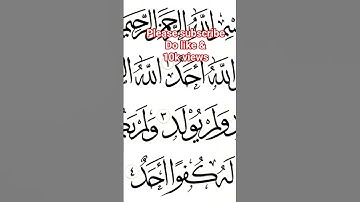 اللَّهِ الرَّحْمَٰنِ الرَّحِيمِ
Please subscribe
Do like &
10k views
اللَّهُ أَحَدٌ اللَّهُ
وَلَمْ يُولَدْ ٣ وَلَمْ
لَهُ كُفُوًا أَحَدٌ ٤